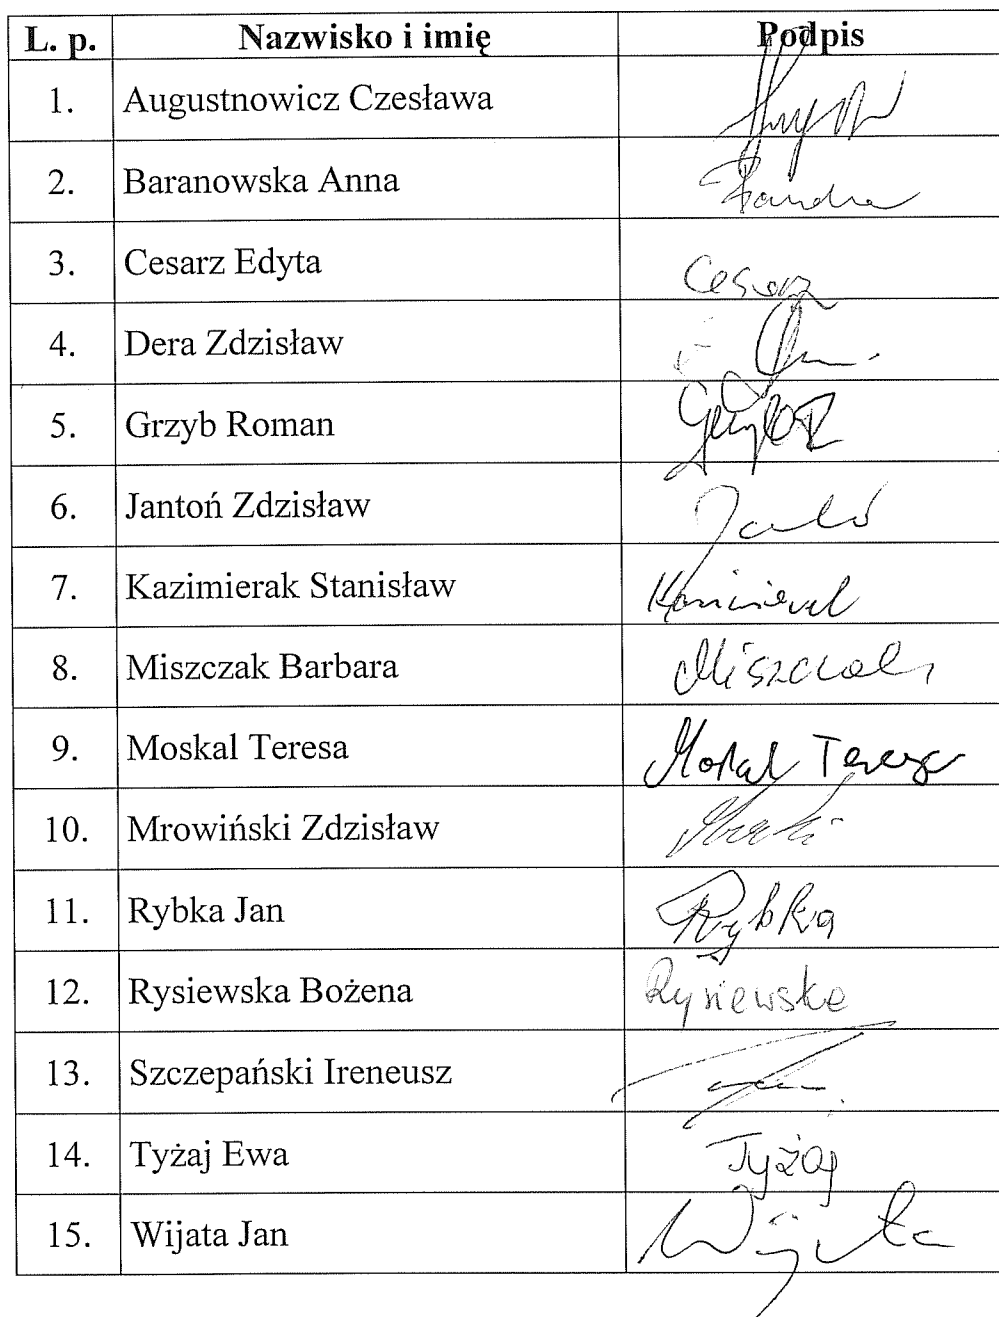 L. p. Nazwisko i imię Podpis
1. Augustnowicz Czesława
2. Baranowska Anna
3. Cesarz Edyta Cesarz
4. Dera Zdzisław
5. Grzyb Roman
6. Jantoń Zdzisław
7. Kazimierak Stanisław
8. Miszczak Barbara Miszczak
9. Moskal Teresa Moskal Teresa
10. Mrowiński Zdzisław
11. Rybka Jan Rybka
12. Rysiewska Bożena Rysiewska
13. Szczepański Ireneusz
14. Tyżaj Ewa Tyżaj
15. Wijata Jan Wijata